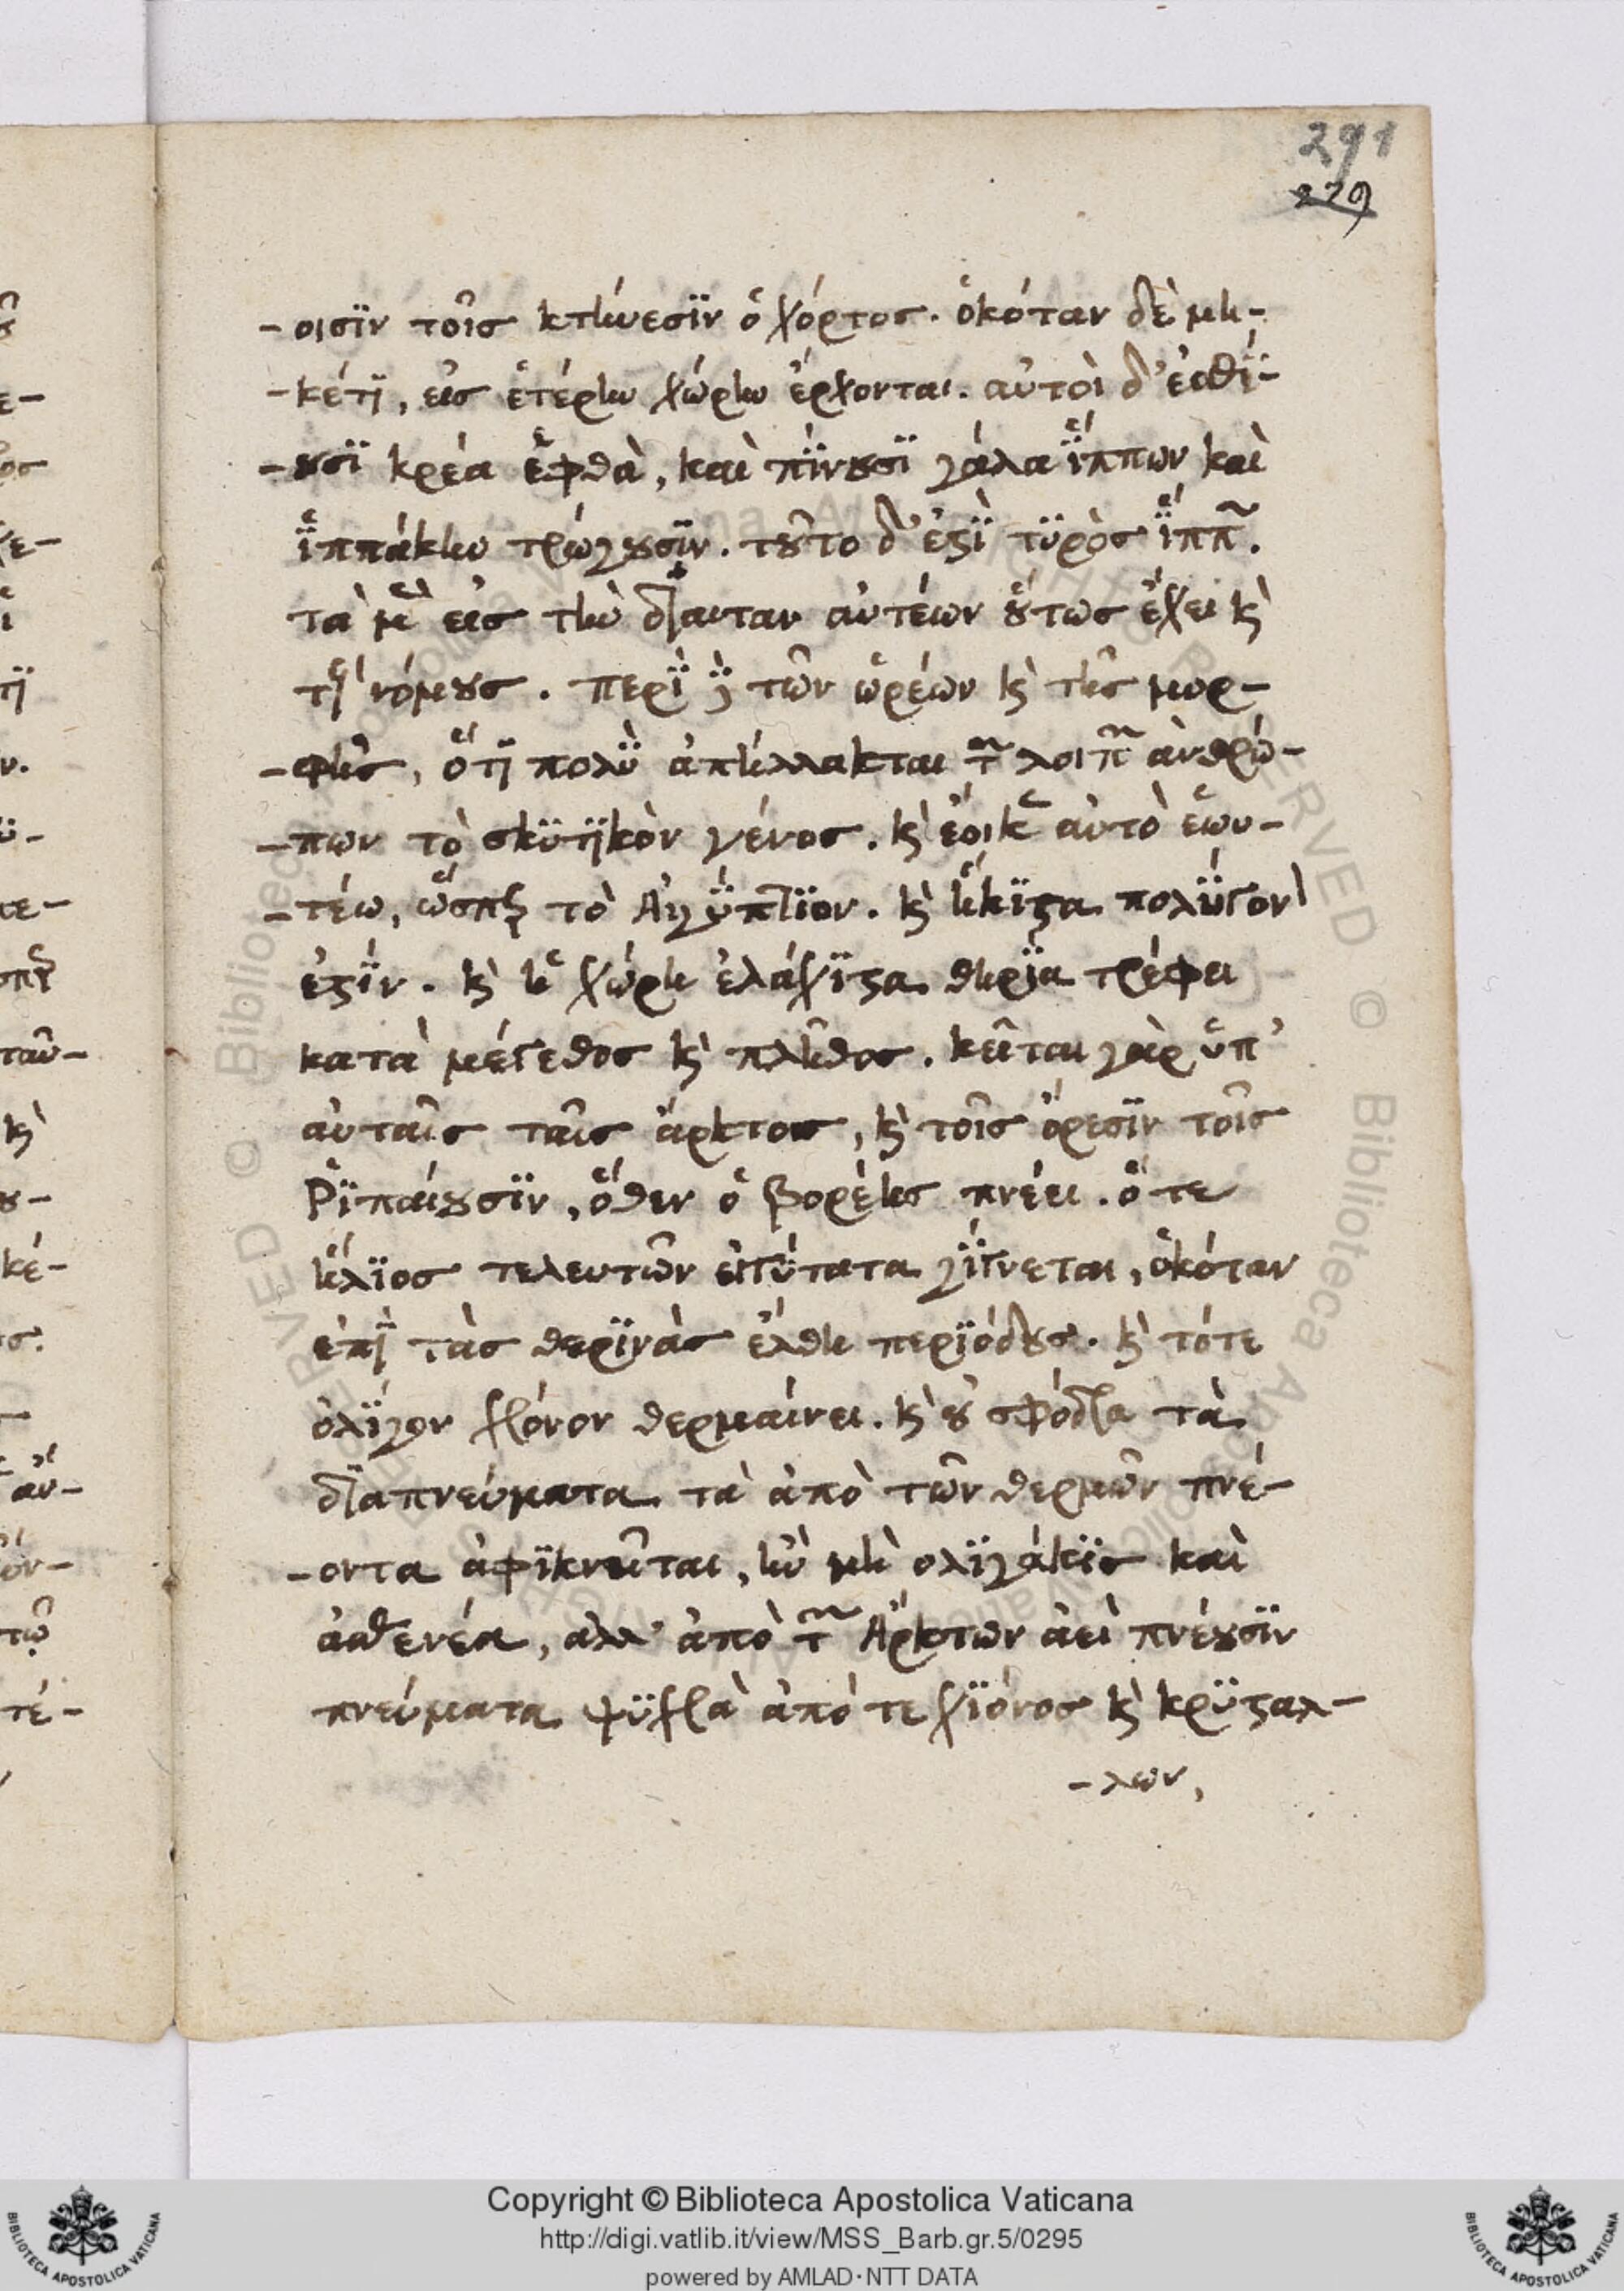 291
279
-οισϊν τοῖσ κτήνεσϊν ὁ χόρτοσ. ὁκόταν δὲ μη-
-κέτϊ, εἰσ ἑτέρην χώρην ἔρχονται. αὐτοὶ δ' ἐσθί-
-ουσϊ κρέα ἑφθὰ, καὶ πίνουσϊ γάλα ἵππων καὶ
ἱππάκην τρώγουσϊν. τοῦτο δ' ἐστϊ τϋρὸσ ἵππ̃.
τὰ μὲ̀ εἰσ τὴν δΐαιταν αὐτέων οὕτωσ ἔχει κ̀
τῇ νόμουσ. περὶ δ̀ τῶν ὡρέων κ̀ τῆσ μορ-
-φῆσ, ὅτϊ πολὺ ἀπήλλακται τ̃ λοιπ̃ ἀνθρώ-
-πων τὸ σκϋτϊκὸν γένοσ. κ̀ ἔοικε αὐτὸ ἑωυ-
-τέω, ὥσπερ τὸ Αἰγύπτϊον. κ̀ ἥκϊστα πολύγον
ἐστίν. κ̀ ἡ χώρη ἐλάχϊστα θηρΐα τρέφει
κατὰ μέγεθοσ κ̀ πλῆθοσ. κεῖται γὰρ ὑπ'
αὐταῖσ ταῖσ ἄρκτοισ, κ̀ τοῖσ ὄρεσϊν τοῖσ
Ῥϊπαίουσϊν, ὅθεν ὁ βορέησ πνέει. ὅ τε
ἥλϊοσ τελευτῶν ἐγγύτατα γίγνεται, ὁκόταν
ἐπῒ τὰσ θερϊνὰσ ἔλθη περϊόδουσ. κ̀ τότε
ὀλίγον χρόνον θερμαίνει. κ̀ οὐ σφόδρα τὰ
δϊαπνεύματα τὰ ἀπὸ τῶν θερμῶν πνέ-
-οντα ἀφϊκνεῖται, ἢν μὴ ολϊγάκϊσ καὶ
ἀσθενέα, αλλ' ἀπὸ τ̃ Ἄρκτων ἀεὶ πνέουσϊν
πνεύματα ψϋχρὰ ἀπό τε χϊόνοσ κ̀ κρϋσταλ-
-λων,
Copyright © Biblioteca Apostolica Vaticana
http://digi.vatlib.it/view/MSS_Barb.gr.5/0295
powered by AMLAD·NTT DATA